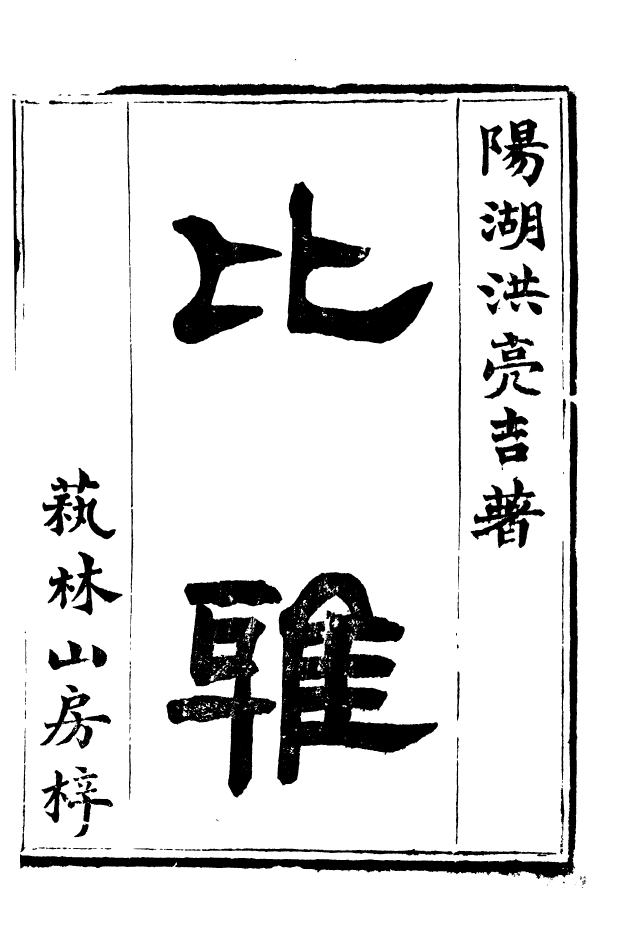 陽湖洪亮吉著
比雅
蓺林山房梓